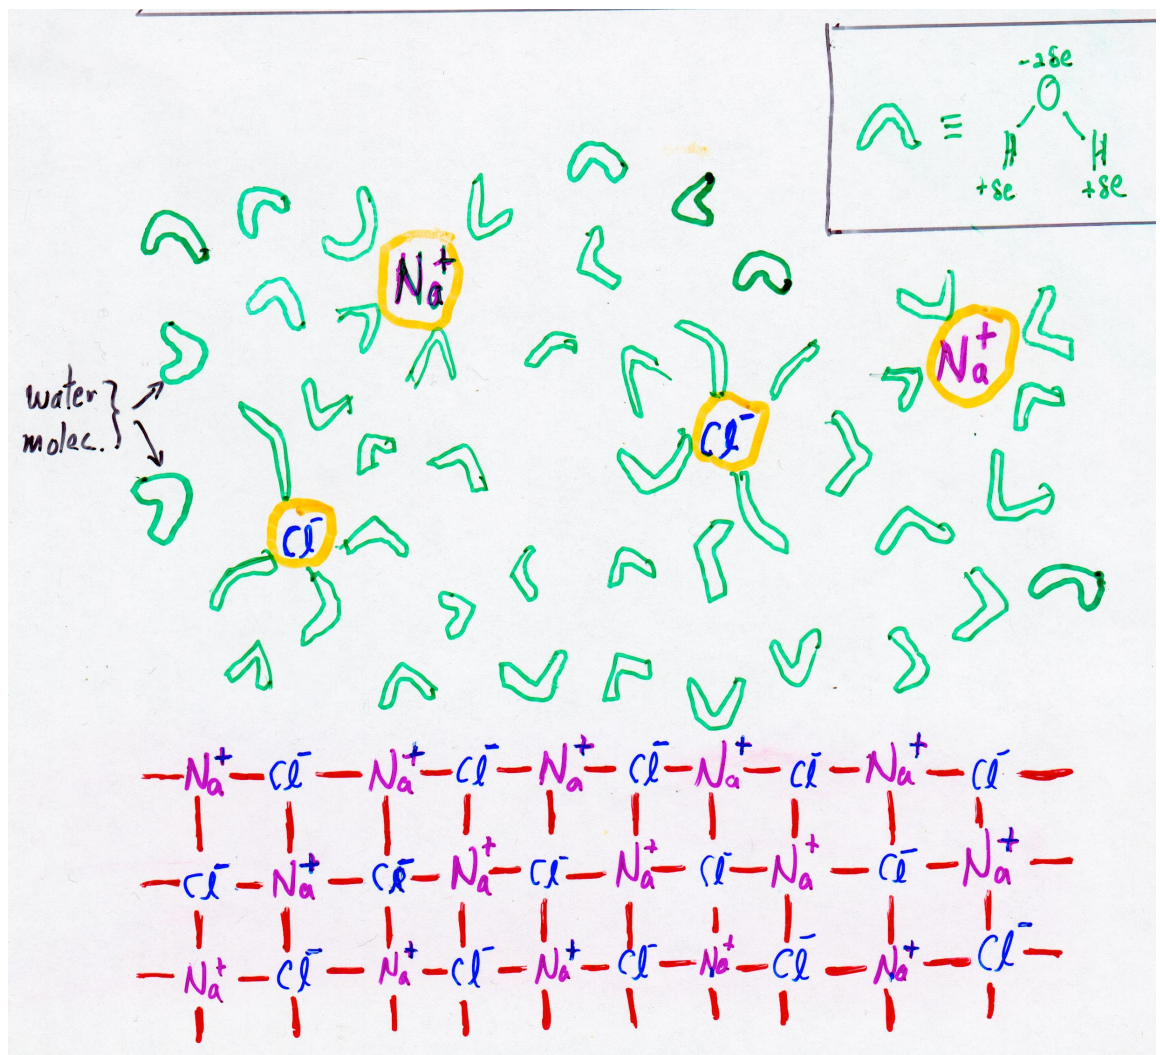 -2δe
O
≡
H H
+δe +δe
Na⁺
Na⁺
water
molec.
Cl⁻
Cl⁻
Na⁺ Cl⁻ Na⁺ Cl⁻ Na⁺ Cl⁻ Na⁺ Cl⁻ Na⁺ Cl⁻
Cl⁻ Na⁺ Cl⁻ Na⁺ Cl⁻ Na⁺ Cl⁻ Na⁺ Cl⁻ Na⁺
Na⁺ Cl⁻ Na⁺ Cl⁻ Na⁺ Cl⁻ Na⁺ Cl⁻ Na⁺ Cl⁻